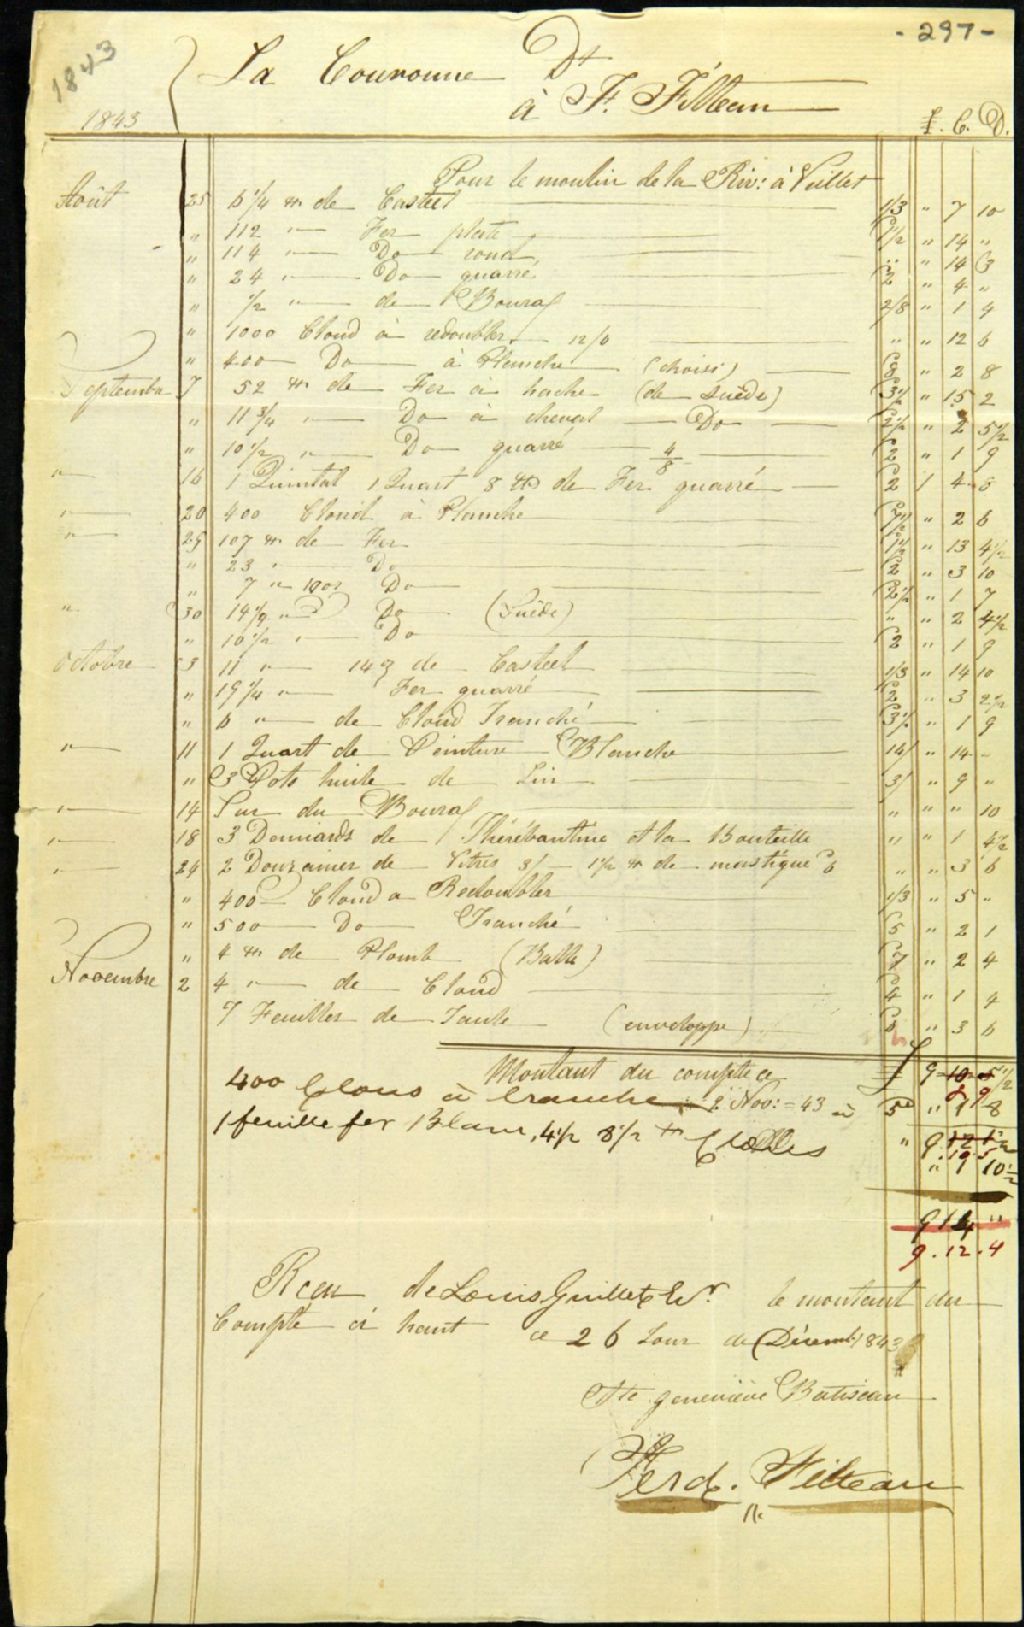 - 297 -
1843
La Couronne Dt
1843 à F. Filteau
£. C. D.
Pour le moulin de la Riv: à Veillet
Août 25 6 1/4 lb de Casteel 1/3 " 7 10
" 112 " Fer platte 1 1/2 " 14 "
" 114 " Do rond " " 14 3
" 24 " Do quarré 2 " 4 "
" 1/2 " de Boura 2/8 " 1 4
" 1000 Cloud à redoubler 12/6 " " 12 6
" 400 Do à Planche (choisi) 8 " 2 8
Septembre 7 52 lb de Fer à hache (de Suède) 3 1/2 " 15 2
" 11 3/4 " Do à cheval Do 2 1/2 " 2 5 1/2
" 10 1/2 " Do quarré 2 " 1 9
" 16 1 Quintal 1 Quart 8 lb de Fer quarré 2 1 4 6
" 20 400 Cloud à Planche 7 1/2 " 2 6
" 29 107 lb de Fer 1 1/2 " 13 4 1/2
" 23 " Do 2 " 3 10
7 " 10oz Do 2 1/2 " 1 7
" 30 14 1/2 " Do (Suède) " " 2 4 1/2
" 10 1/2 " Do 2 " 1 9
Octobre 3 11 " 14 de Casteel 1/3 " 14 10
" 19 1/4 " Fer quarré 2 " 3 2 1/2
" 6 " de Cloud Tranché 3 1/2 " 1 9
" 11 1 Quart de Peinture Blanche 14/ " 14 -
" 3 Pots huile de Lin 3/ " 9 "
" 14 Sur du Boura " " " 10
" 18 3 Demiards de Thérébantine et la Bouteille " " 1 4 1/2
" 24 2 Douzaines de Vitres 3/ 1 1/2 lb de mastique 6 " " 3 6
" 400 Cloud a Redoubler 1/3 " 5 "
" 500 Do Tranché 5 " 2 1
" 4 lb de Plomb (Balle) 7 " 2 4
Novembre 2 4 " de Cloud 4 " 1 4
7 Feuilles de Taule (enveloppe) 6 " 3 6
Montant du compte ce £ 9 10 5 1/2
400 Clous à branche 2 Nov: 43 à 5d " 1 8
1 feuille fer Blanc, 4 1/2 8 1/2 lb " 9 12 1 1/2
" 1 10 1/2
9 14 "
9 . 12 . 4
Reçu de Louis Guillet Er le montant du
Compte ci haut ce 26 Jour de Décemb 1843
Ste geneviève Batiscan
Ferd. Filteau